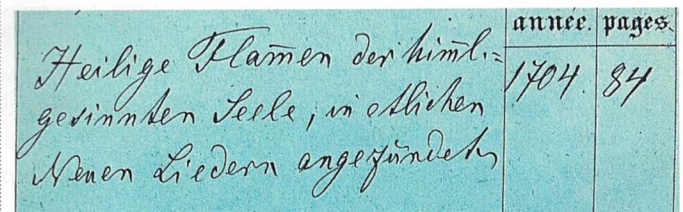 année. pages.
Heilige Flam̅en der him̅l.= 1704. 84
gesinnten Seele, in etlichen
Neuen Liedern angezündet,